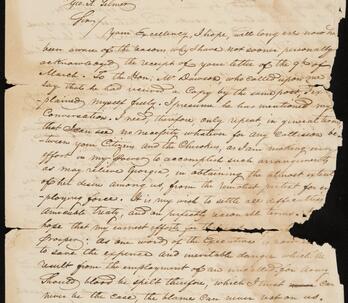 Geo. R. Gilmer
Your Excellency, I hope, will long ere now have
been aware of the reasons why I have not sooner personally
acknowledged the receipt of your letter of the 9th of
March. To the Hon. Mr Dawson who called upon me
say that he had received a Copy by the same post, I ex-
plained myself fully. I presume he has mentioned my
Conversation. I need therefore, only repeat, in general terms
that I can see no necessity whatever for any Collision be-
tween your Citizens and the Cherokees, as I am making every
effort in my power to accomplish such arrangements
as may relieve Georgia, in obtaining the utmost extent
of her desire among us, from the remotest pretext for em-
ploying force. It is my wish to settle all difficulties
amicable treaty, and on perfectly reasonable terms. I
hope that my earnest efforts for
prosper: as one word of the Executive is
to save the expense and inevitable danger which
result from the employment of an
Should blood be spilt therefore, which I trust can
never be the case, the blame can never rest on us.